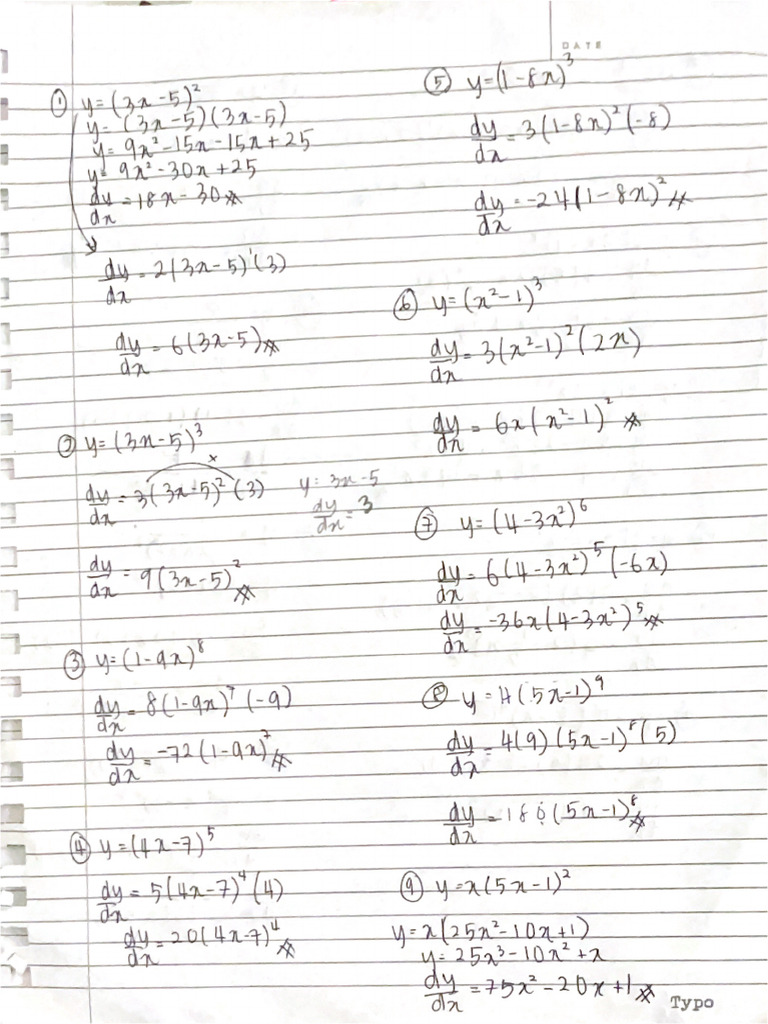 DATE
① y = (3x-5)²
y = (3x-5)(3x-5)
y = 9x² - 15x - 15x + 25
y = 9x² - 30x + 25
dy/dx = 18x - 30
dy/dx = 2(3x-5)¹(3)
dy/dx = 6(3x-5)
② y = (3x-5)³
dy/dx = 3(3x-5)²(3)
y = 3x-5
dy/dx = 3
x
dy/dx = 9(3x-5)²
③ y = (1-9x)⁸
dy/dx = 8(1-9x)⁷(-9)
dy/dx = -72(1-9x)⁷
④ y = (4x-7)⁵
dy/dx = 5(4x-7)⁴(4)
dy/dx = 20(4x-7)⁴
⑤ y = (1-8x)³
dy/dx = 3(1-8x)²(-8)
dy/dx = -24(1-8x)²
⑥ y = (x²-1)³
dy/dx = 3(x²-1)²(2x)
dy/dx = 6x(x²-1)²
⑦ y = (4-3x²)⁶
dy/dx = 6(4-3x²)⁵(-6x)
dy/dx = -36x(4-3x²)⁵
⑧ y = 4(5x-1)⁹
dy/dx = 4(9)(5x-1)⁸(5)
dy/dx = 180(5x-1)⁸
⑨ y = x(5x-1)²
y = x(25x²-10x+1)
y = 25x³-10x²+x
dy/dx = 75x²-20x+1
Typo